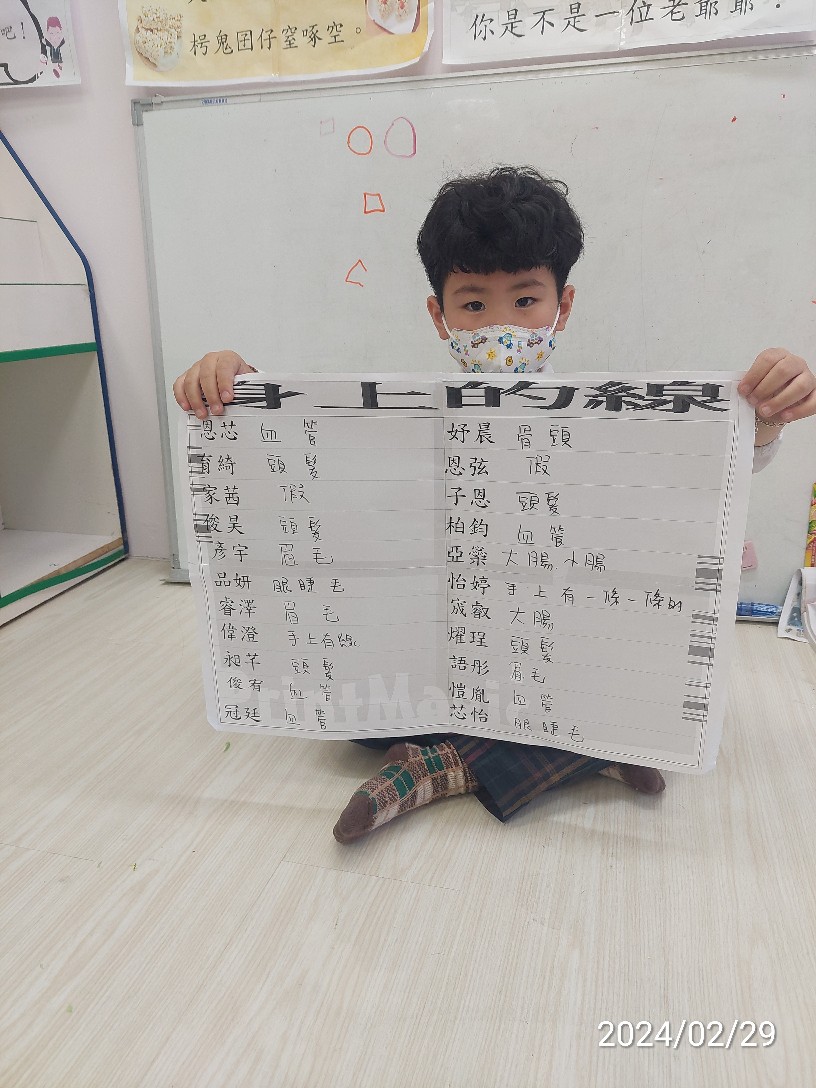 吧！
栲鬼囝仔窒啄空。
你是不是一位老爺爺？
身上的線
恩芯 血管
育綺 頭髮
家茜 假
俊昊 頭髮
彥宇 眉毛
品妍 眼睫毛
睿澤 眉毛
偉澄 手上有
昶芊 頭髮
俊宥 血管
冠廷 血管
妤晨 骨頭
恩弦 假
子恩 頭髮
柏鈞 血管
亞蘂 大腸 小腸
怡婷 手上有一條一條的
宬叡 大腸
燿珵 頭髮
語彤 眉毛
愷胤 血管
芯怡 眼睫毛
2024/02/29